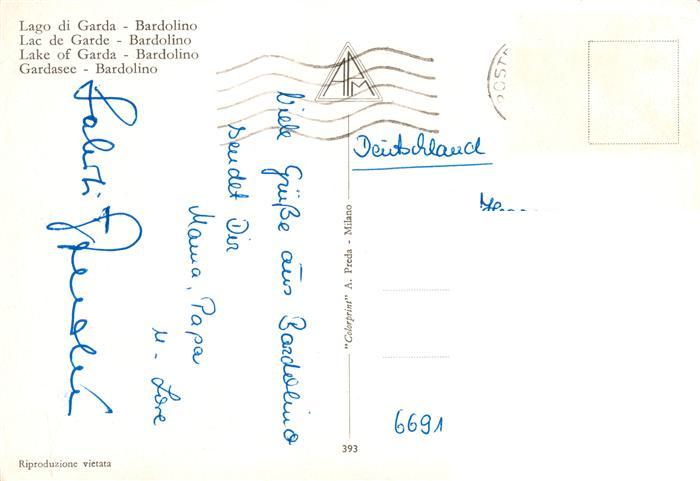 Lago di Garda - Bardolino
Lac de Garde - Bardolino
Lake of Garda - Bardolino
Gardasee - Bardolino
Viele Grüße aus Bardolino
sendet Dir
Mama, Papa
u - Lore
Saluti
Deutschland
6691
"Colorprint" A. Preda - Milano
POST
APM
393
Riproduzione vietata